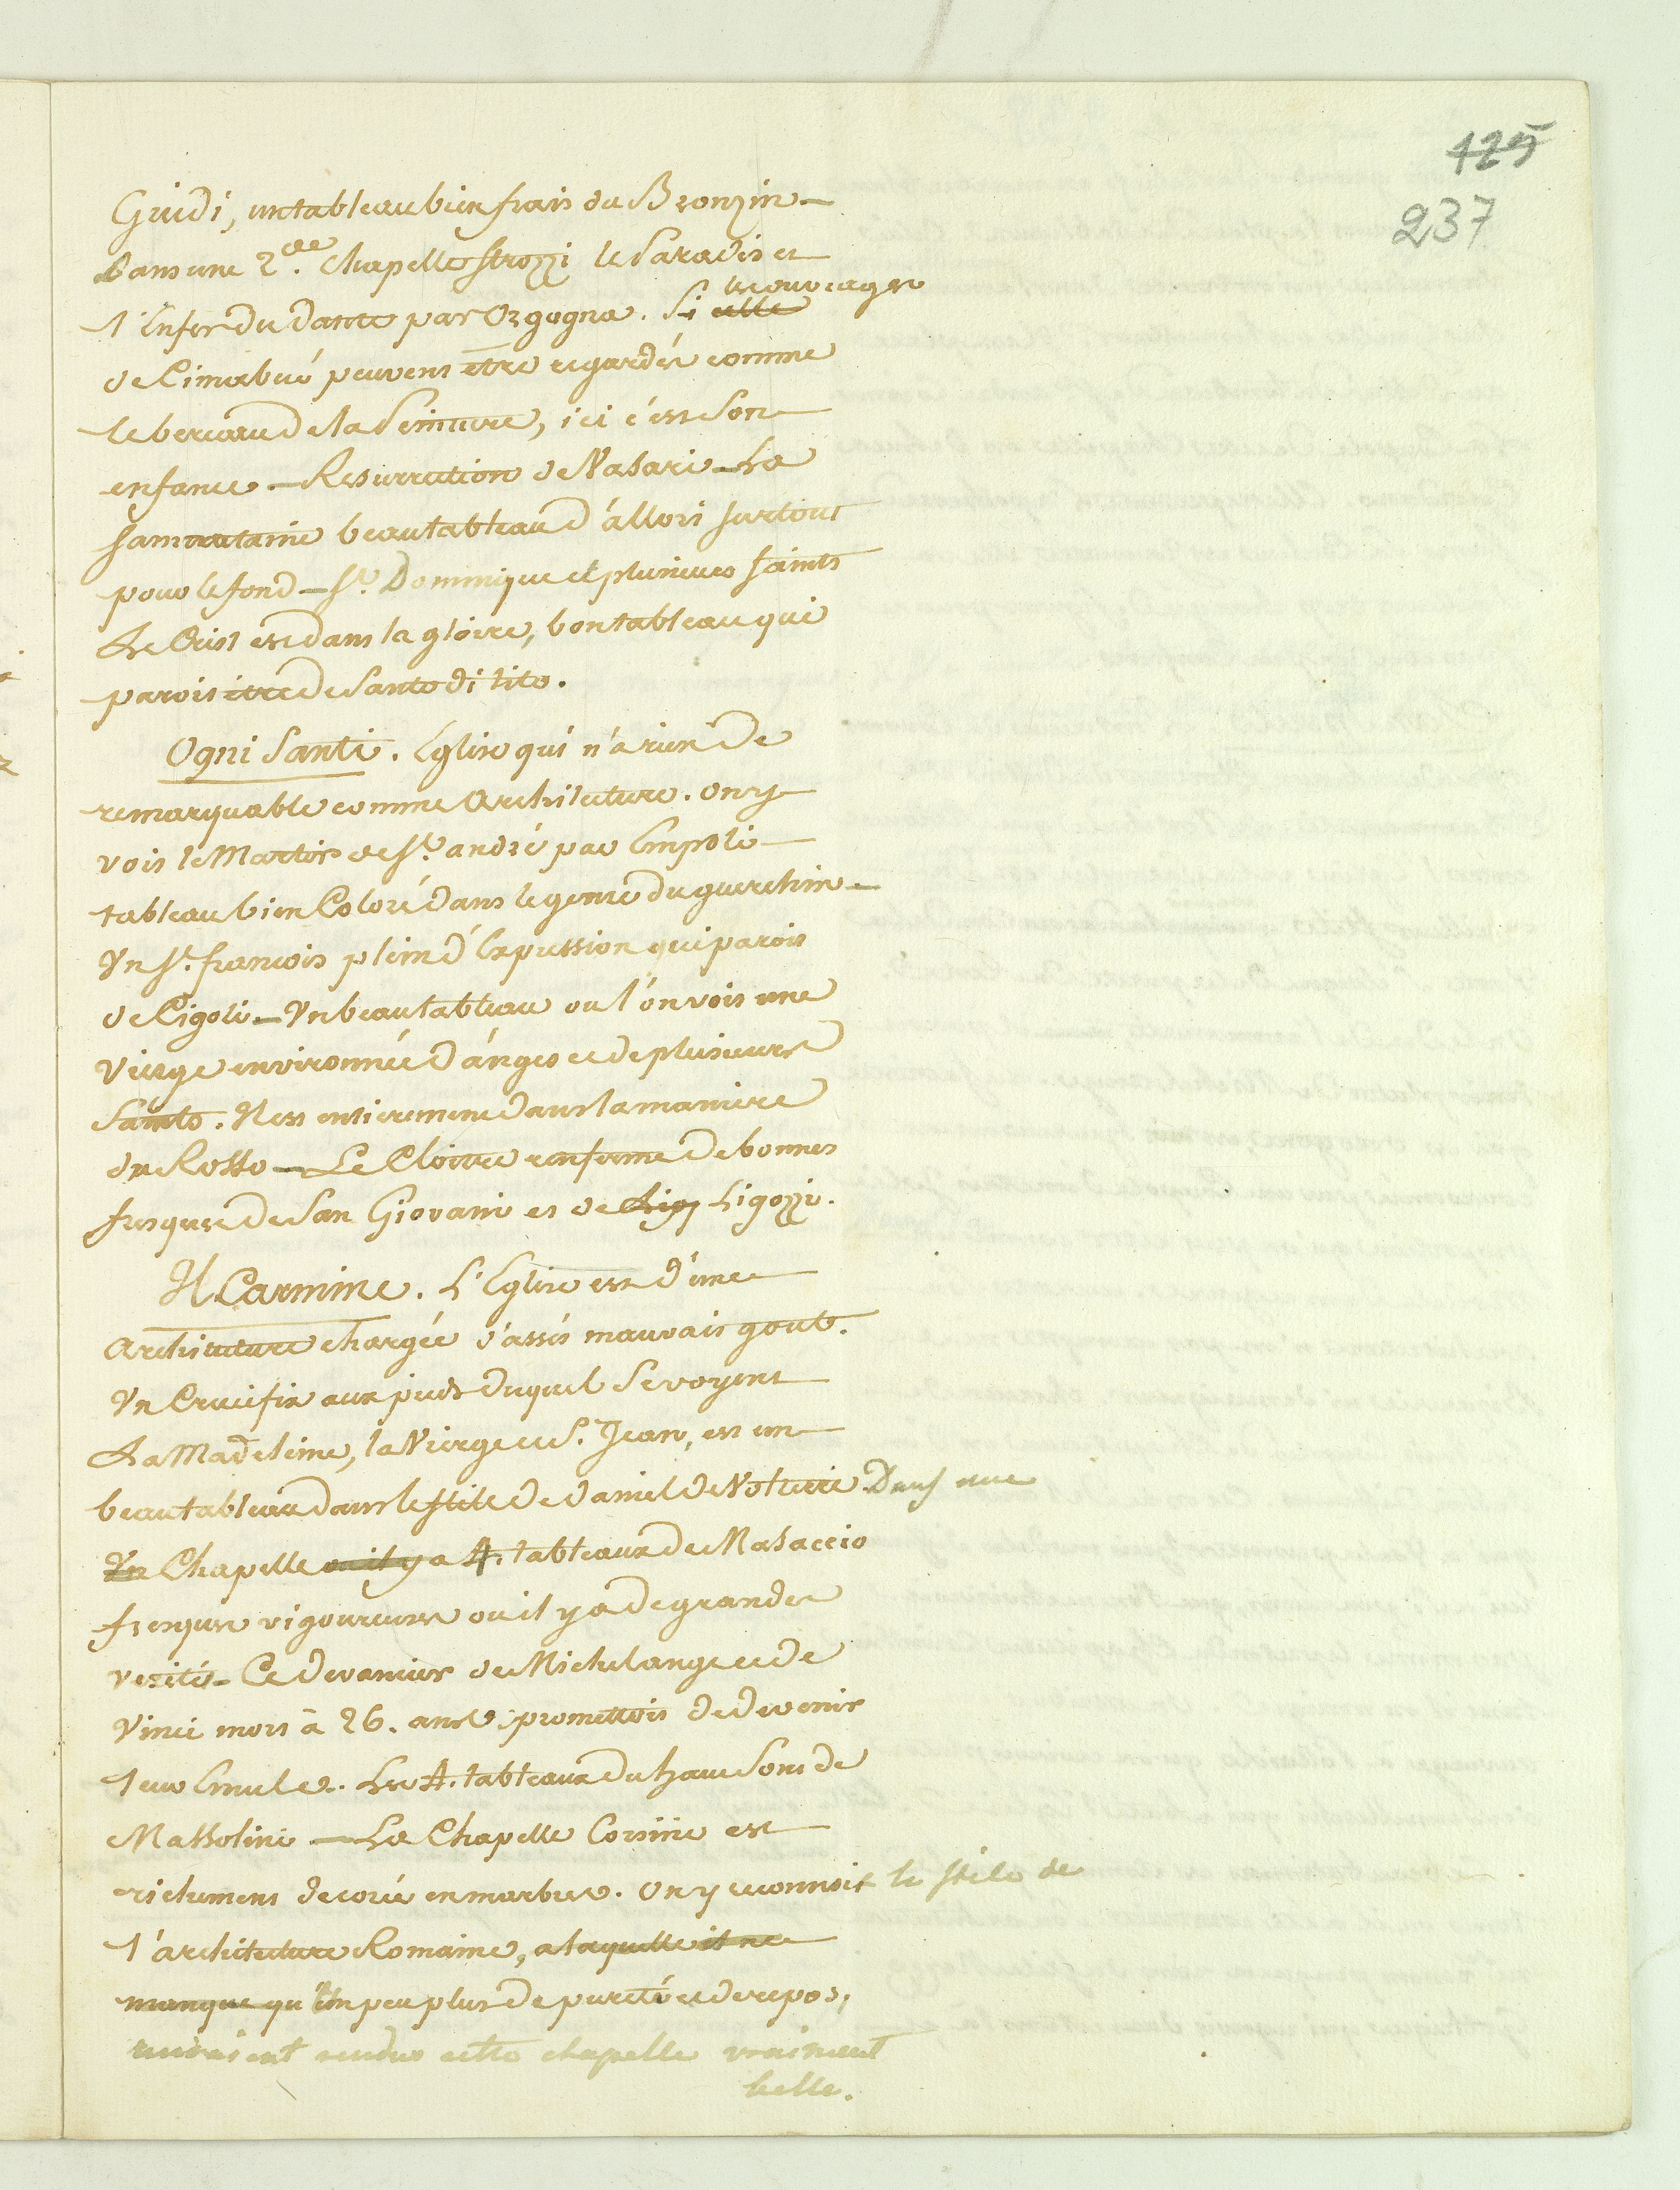 125
237
Guidi, un tableau bien frais du Bronzin —
Dans une 2.de Chapelle Strozzi le Paradis et
les ouvrages
l'Enfer du dante par Orgagna. Si celle
de Cimabué peuvent être regardés comme
le berceau de la Peinture, ici c'est Son
enfance — Resurrection de Vasari — La
Samaritaine beau tableau d'allori surtout
pour le fond — St. Dominique et plusieurs saints
Le Crist est dans la gloire, bon tableau qui
parois être de Santo di tito.
Ogni Santi. Eglise qui n'a rien de
remarquable comme Architecture. on y
vois le Martir de St. andré par Empoli —
tableau bien Coloré dans le genre du guerchin —
Un St. francois plein d'Expression qui parois
de Cigoli — Un beau tableau ou l'on vois une
Vierge environnée d'anges et de plusieurs
Saints. Il est entierement dans la maniere
du Rosso — Le Cloitre renferme de bonnes
fresques de San Giovani et de Ligozzi.
Il Carmine. L'Eglise est d'une
Architecture chargée d'assés mauvais gout.
Un Crucifix aux pieds duquel Se voyent
La Madeleine, la Vierge et S. Jean, est un
beau tableau dans le stile de daniel de Volterre. Dans une
Un Chapelle ou il y a 4. tableaux de Masaccio
fresques vigoureuses ou il y a de grandes
verités — Ce devancier de Michelange et de
Vinci mors à 26. ans promettois de devenir
leur Emule. Les 4. tableaux du haut Sont de
Massolini — La Chapelle Corsini est
richement decorée en marbre. On y reconnoit le stile de
l'architecture Romaine, a laquelle il ne
manque qu'Un peu plus de pureté et de repos,
auraient rendue cette chapelle vraiment
belle.